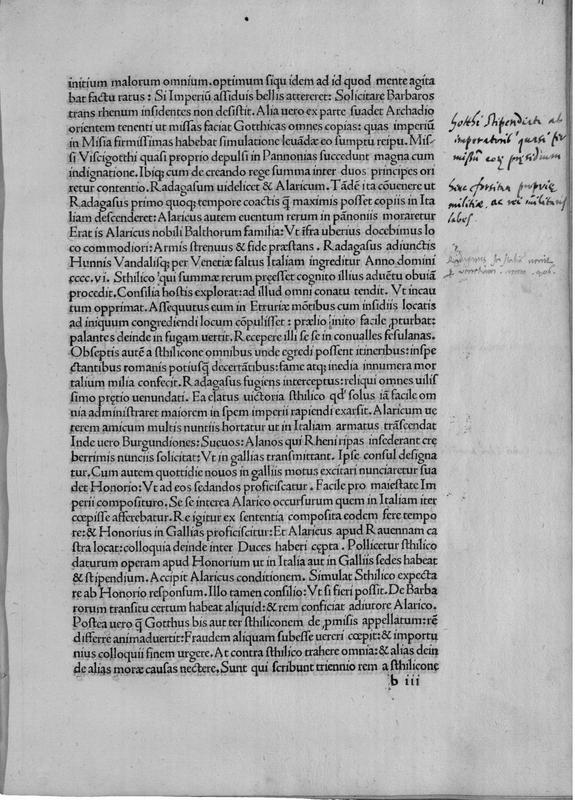 initium malorum omnium.optimum siqu idem ad id quod mente agita
bat factu ratus: Si Imperiū assiduis bellis attereret: Solicitare Barbaros
trans rhenum insidentes non desistit. Alia uero ex parte suadet Archadio
orientem tenenti ut missas faciat Gotthicas omnes copias: quas imperiū
in Misia firmissimas habebat simulatione leuādæ eo sumptu reipu. Mis-
si Viscigotthi quasi proprio depulsi in Pannonias succedunt magna cum
indignatione. Ibiq; cum de creando rege summa inter duos principes ori
retur contentio. Radagasum uidelicet & Alaricum. Tādē ita cōuenere ut
Radagasus primo quoq; tempore coactis q̄ maximis posset copiis in Ita
liam descenderet: Alaricus autem euentum rerum in pānoniis moraretur
Erat is Alaricus nobili Balthorum familia: Vt īfra uberius docebimus lo
co commodiori: Armis strenuus & fide præstans. Radagasus adiunctis
Hunnis Vandalisq; per Venetiæ saltus Italiam ingreditur Anno domini
cccc.vi. Sthilico qui summæ rerum preesset cognito illius aduētu obuiā
procedit. Consilia hostis explorat: ad illud omni conatu tendit. Vt incau
tum opprimat. Assequutus eum in Etruriæ mōtibus cum insidiis locatis
ad iniquum congrediendi locum cōpulisset: prælio inito facile ꝑturbat:
palantes deinde in fugam uertit. Recepere illi se se in conualles fesulanas.
Obseptis autē a sthilicone omnibus unde egredi possent itineribus: inspe
ctantibus romanis potiusq̄ decertātibus: fame atq; inedia innumera mor
talium milia confecit. Radagasus fugiens interceptus: reliqui omnes uilis
simo prętio uenundati. Ea elatus uictoria sthilico qd' solus iā facile om
nia administraret maiorem in spem imperii rapiendi exarsit. Alaricum ue
terem amicum multis nuntiis hortatur ut in Italiam armatus trāscendat
Inde uero Burgundiones: Sueuos: Alanos qui Rheni ripas insederant cre
berrimis nunciis solicitat: Vt in gallias transmittant. Ipse consul designa
tur. Cum autem quottidie nouos in galliis motus excitari nunciaretur sua
det Honorio: Vt ad eos sedandos proficiscatur. Facile pro maiestate Im
perii compositurō. Se se interea Alarico occursurum quem in Italiam iter
cœpisse afferebatur. Re igitur ex sententia composita eodem fere tempo
re: & Honorius in Gallias proficiscitur: Et Alaricus apud Rauennam ca
stra locat: colloquia deinde inter Duces haberi cępta. Pollicetur sthilico
daturum operam apud Honorium ut in Italia aut in Galliis sedes habeat
& stipendium. Accipit Alaricus conditionem. Simulat Sthilico expecta
re ab Honorio responsum. Illo tamen consilio: Vt si fieri possit. De Barba
rorum transitu certum habeat aliquid: & rem conficiat adiutore Alarico.
Postea uero q̄ Gotthus bis aut ter sthiliconem de ꝓmisis appellatum: rē
differre animaduertit: Fraudem aliquam subesse uereri cœpit: & importu
nius colloquii finem urgere. At contra sthilico trahere omnia: & alias dein
de alias moræ causas nectere. Sunt qui scribunt triennio rem a sthilicone
b iii
Gotthi Stipendiati ab
imperatorib' quasi
missi eoq; presidium
hinc fortima propriæ
militiæ, ac rei militaris
labes.